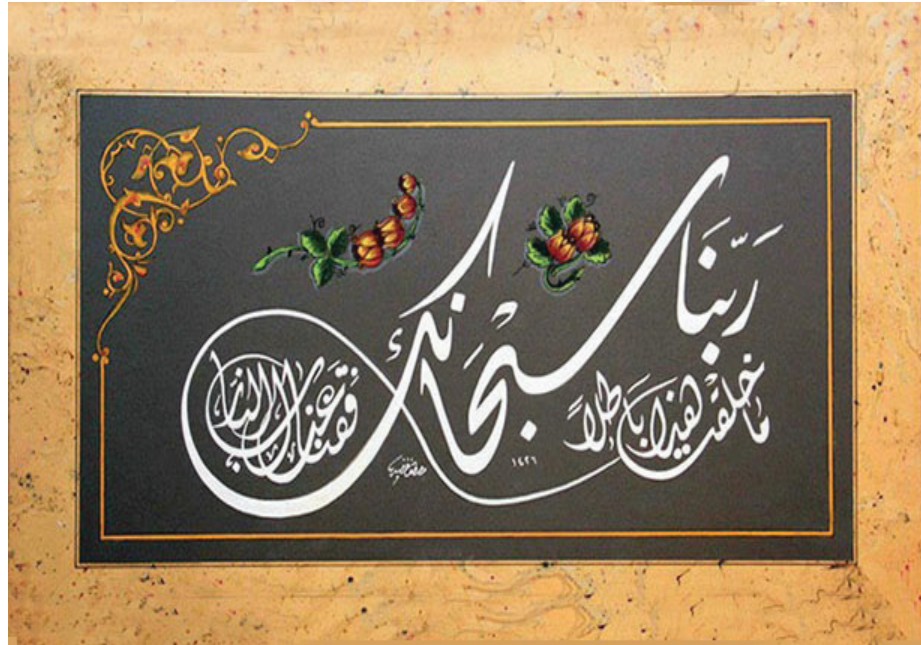 رَبَّنَا
مَا خَلَقْتَ هٰذَا بَاطِلًا
سُبْحَانَكَ
فَقِنَا عَذَابَ النَّارِ
١٤٢٦